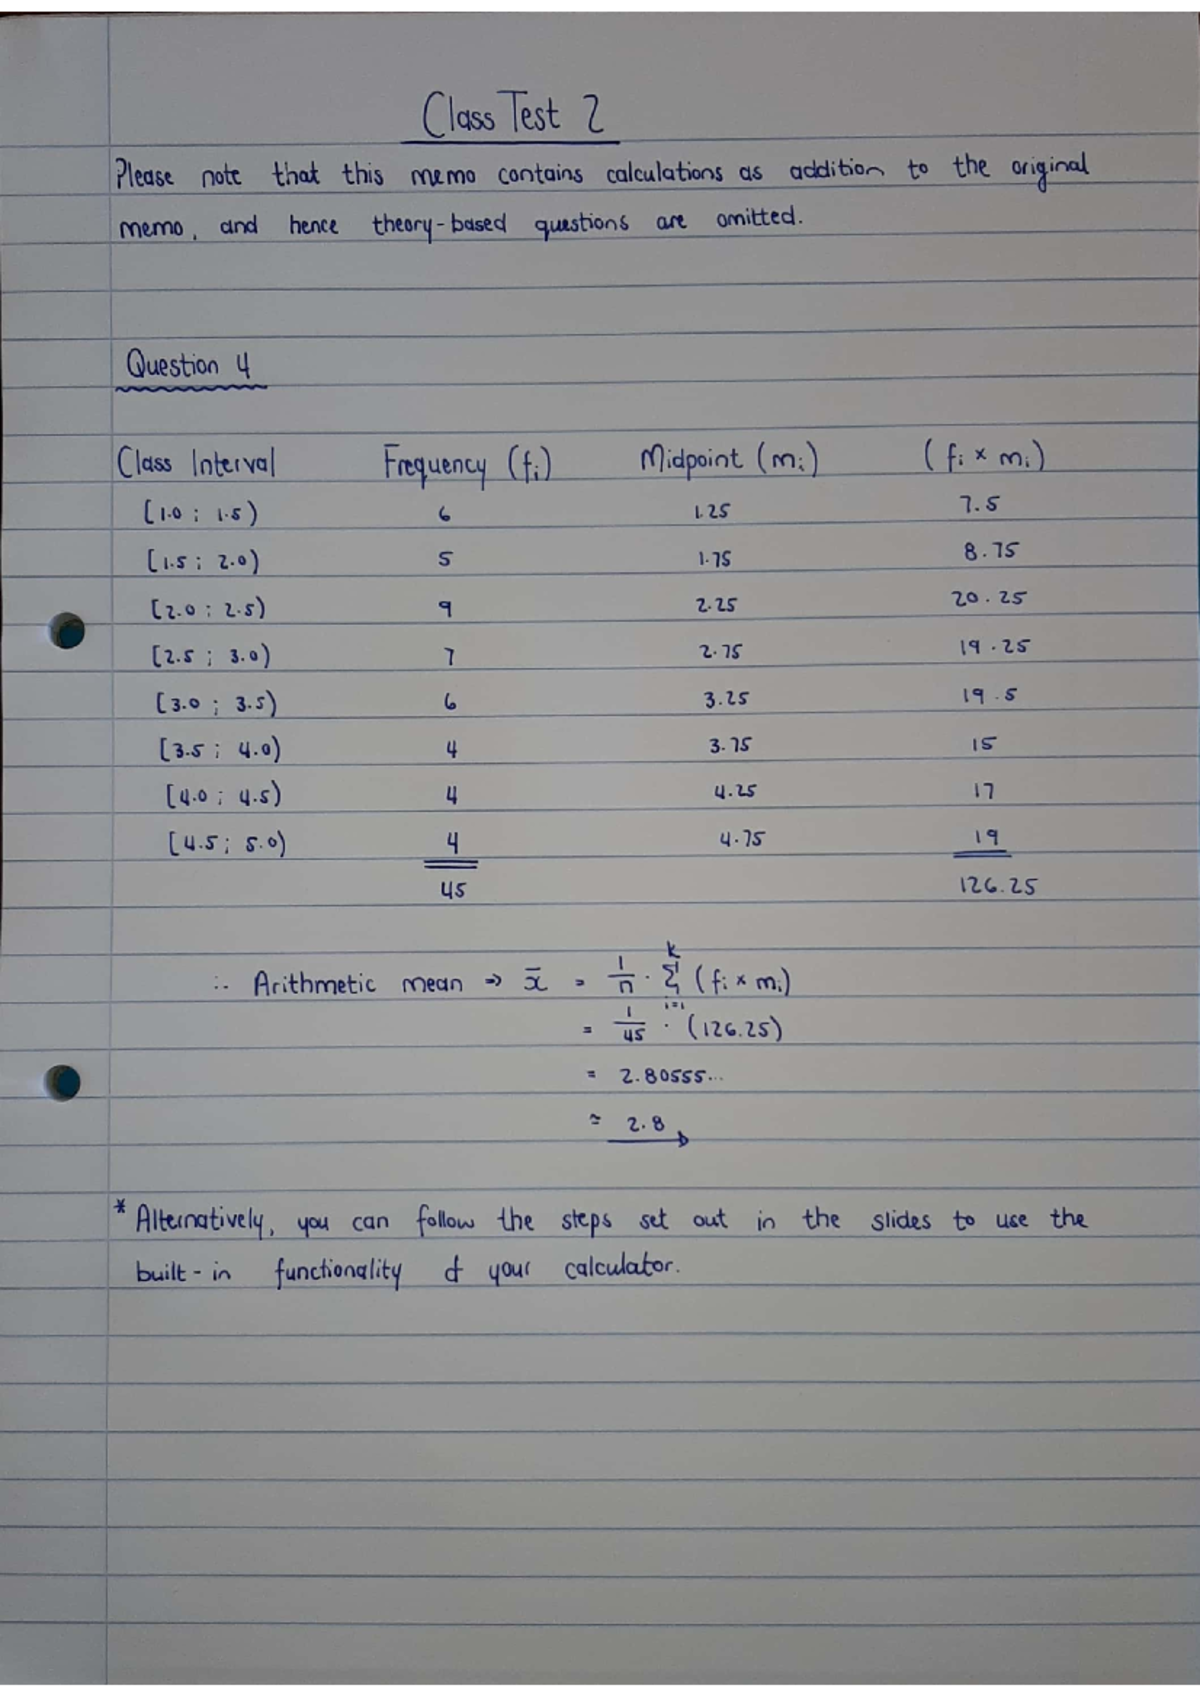 Class Test 2
Please note that this memo contains calculations as addition to the original
memo, and hence theory-based questions are omitted.
Question 4
Class Interval Frequency (fi) Midpoint (mi) (fi × mi)
[1.0 ; 1.5) 6 1.25 7.5
[1.5 ; 2.0) 5 1.75 8.75
[2.0 ; 2.5) 9 2.25 20.25
[2.5 ; 3.0) 7 2.75 19.25
[3.0 ; 3.5) 6 3.25 19.5
[3.5 ; 4.0) 4 3.75 15
[4.0 ; 4.5) 4 4.25 17
[4.5 ; 5.0) 4 4.75 19
45 126.25
∴ Arithmetic mean ⇒ x̄ = 1/n · Σ k i=1 (fi × mi)
= 1/45 · (126.25)
= 2.80555...
≈ 2.8
* Alternatively, you can follow the steps set out in the slides to use the
built-in functionality of your calculator.